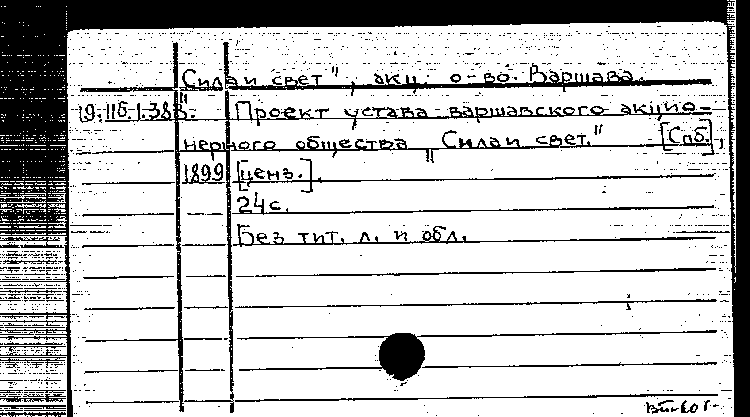 "Сила и свет", акц. о-во. Варшава.
19.116.1.388. Проект устава варшавского акцио-
нерного общества "Сила и свет." [Спб.],
1899 [ценз.].
24 с.
Без тит. л. и обл.